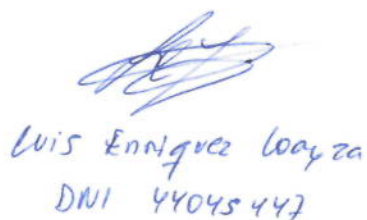 Luis Enriquez Loayza
DNI 44045447